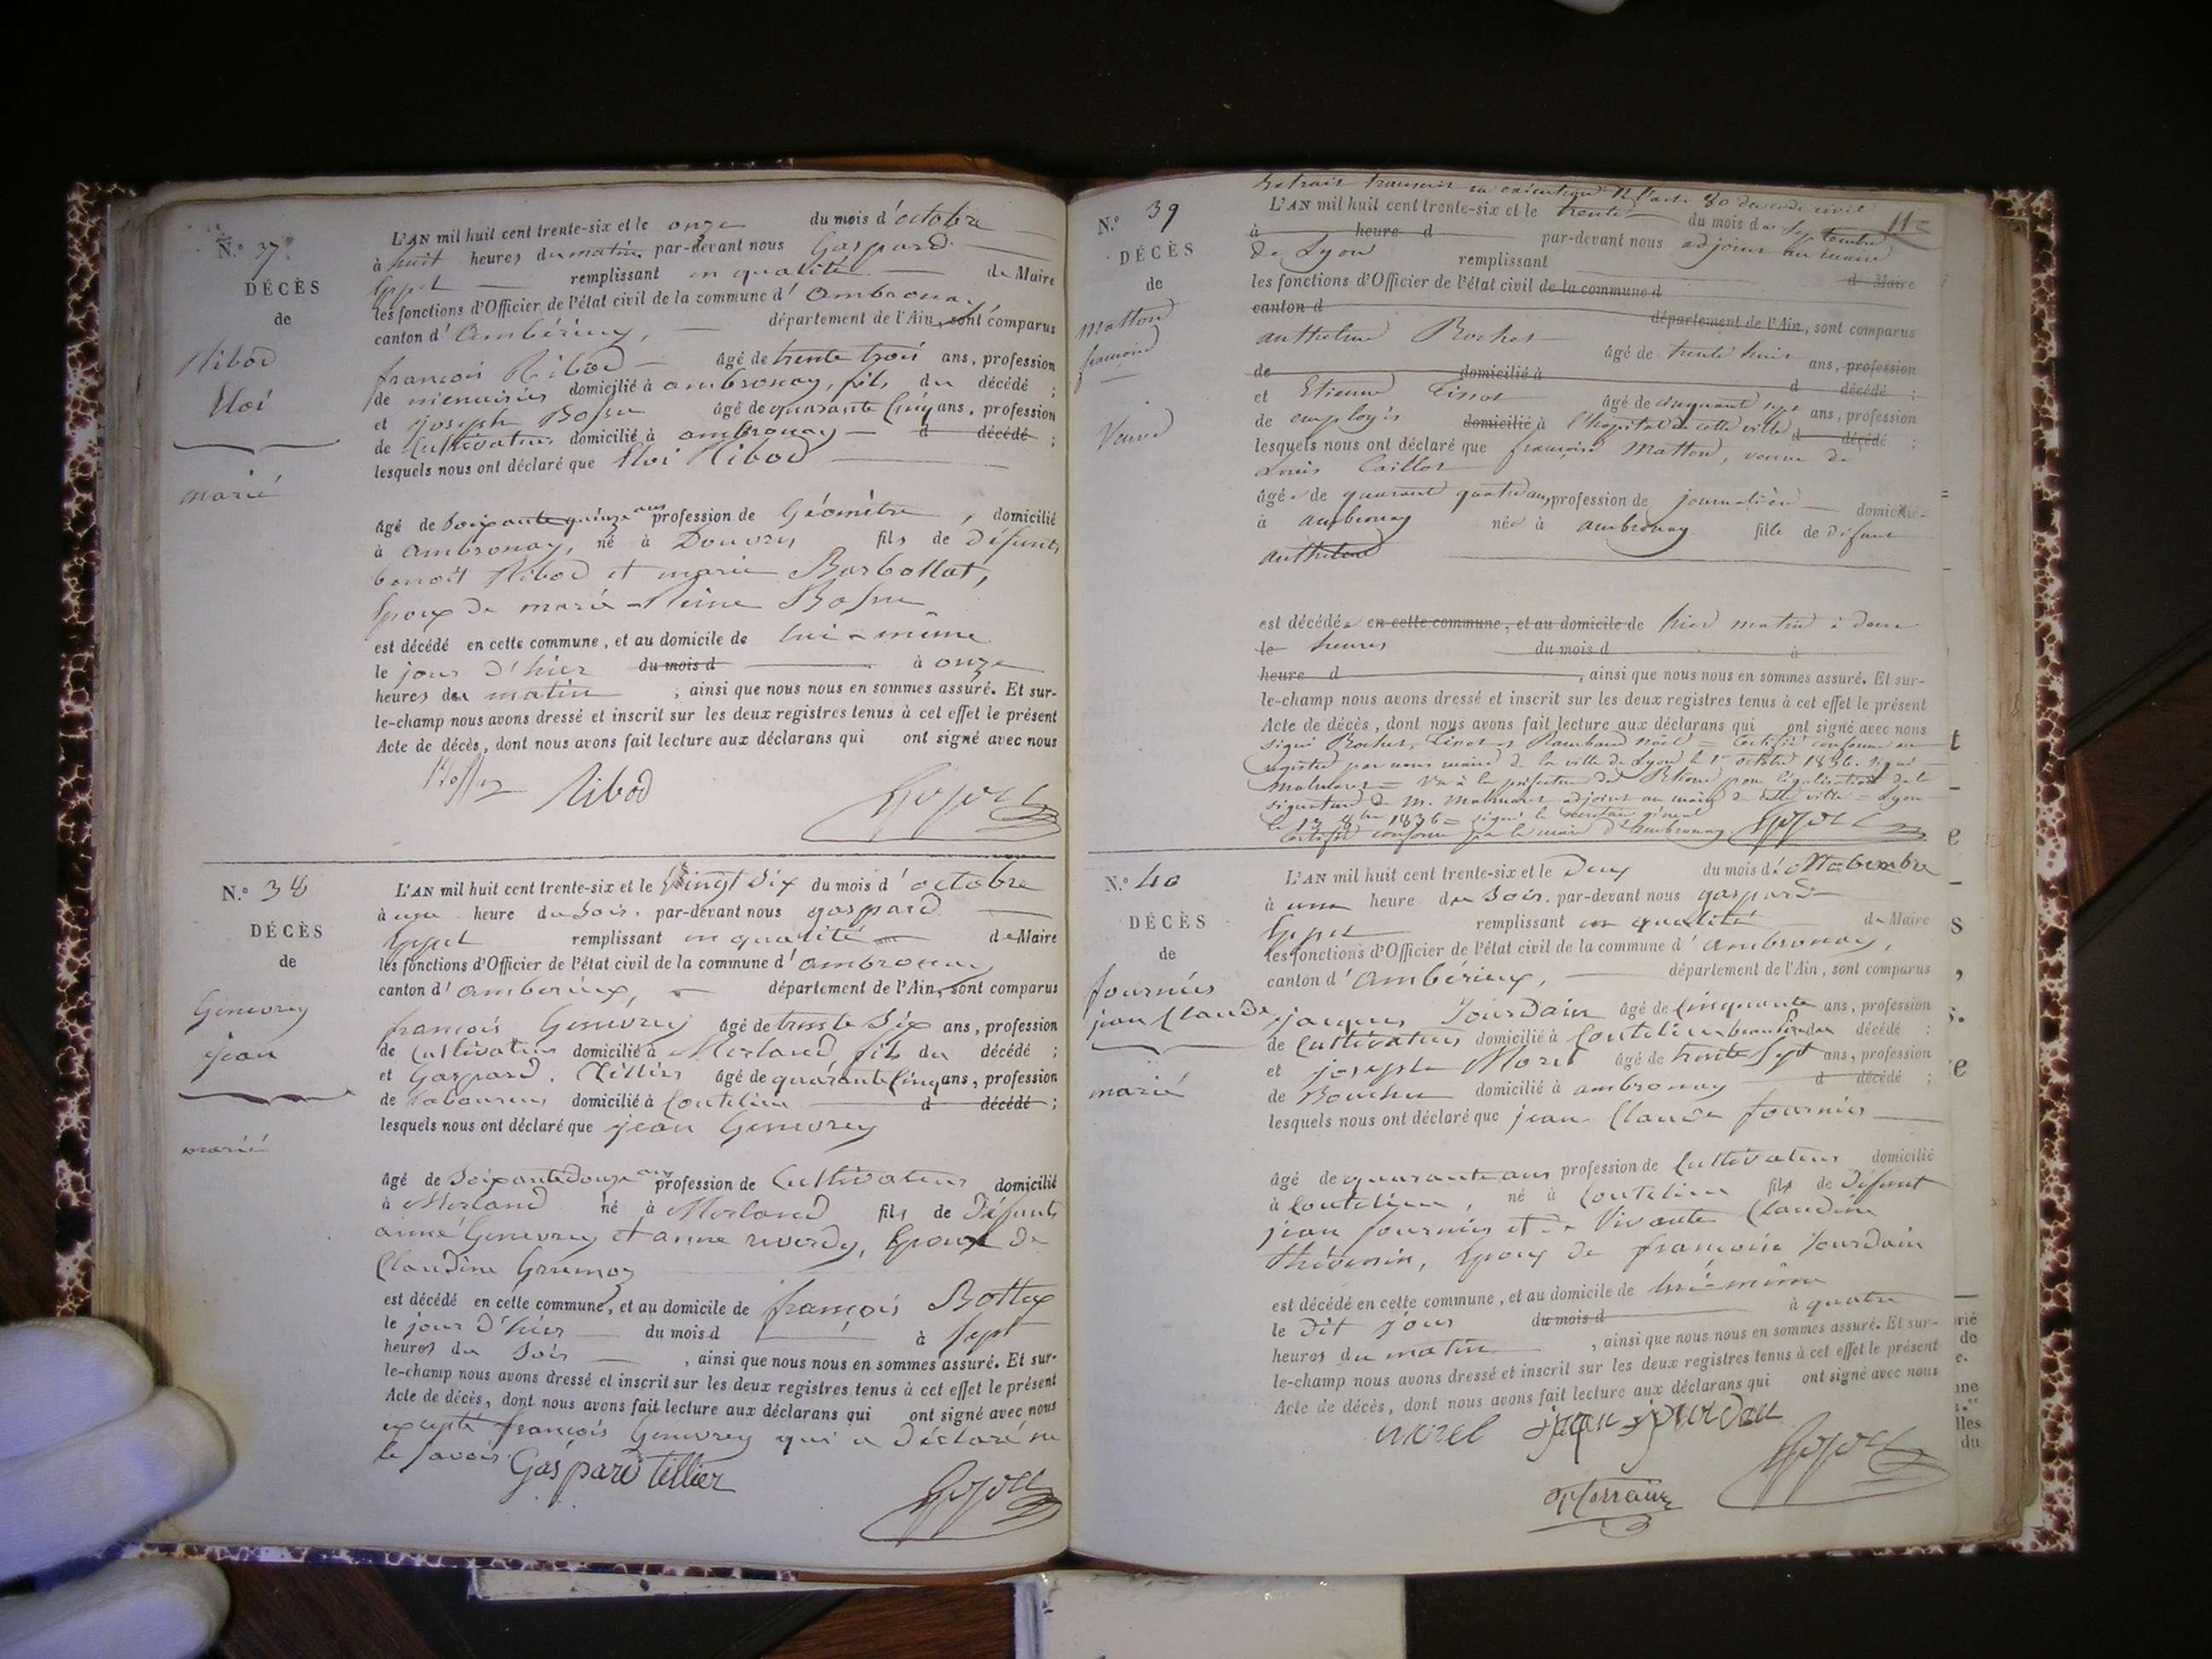 N.° 37
DÉCÈS
de
Ribod
Eloi
marié
L'AN mil huit cent trente-six et le onze du mois d'octobre
à huit heures du matin par-devant nous Gaspard
remplissant en qualité de Maire
les fonctions d'Officier de l'état civil de la commune d'ambronay
canton d'ambérieux, département de l'Ain, sont comparus
françois Ribod âgé de trente trois ans, profession
de menuisier domicilié à ambronay, fils du décédé ;
et joseph âgé de quarante cinq ans, profession
de cultivateur domicilié à ambronay d décédé ;
lesquels nous ont déclaré que Eloi Ribod
âgé de soixante quinze ans profession de Géomètre, domicilié
à ambronay, né à Douvres fils de défunts
benoît Ribod et marie Barbollat,
Epoux de marie-Reine
est décédé en cette commune, et au domicile de lui-même
le jour d'hier du mois d à onze
heures du matin ; ainsi que nous nous en sommes assuré. Et sur-
le-champ nous avons dressé et inscrit sur les deux registres tenus à cet effet le présent
Acte de décès, dont nous avons fait lecture aux déclarans qui ont signé avec nous
Ribod
N.° 38
DÉCÈS
de
Genevrey
jean
marié
L'AN mil huit cent trente-six et le Vingt six du mois d'octobre
à une heure du soir. par-devant nous gaspard
remplissant en qualité de Maire
les fonctions d'Officier de l'état civil de la commune d'ambronay
canton d'amberieux, département de l'Ain, sont comparus
françois Genevrey âgé de trente six ans, profession
de cultivateur domicilié à Merland fils du décédé ;
et Gaspard. Tellier âgé de quarante cinq ans, profession
de laboureur domicilié à Coutelieu d décédé ;
lesquels nous ont déclaré que jean Genevrey
âgé de soixante douze ans profession de cultivateur domicilié
à Merland né à Merland fils de défunts
aimé Genevrey et anne reverdy, Epoux de
Claudine
est décédé en cette commune, et au domicile de françois Bottex
le jour d'hier du mois d à sept
heures du soir, ainsi que nous nous en sommes assuré. Et sur-
le-champ nous avons dressé et inscrit sur les deux registres tenus à cet effet le présent
Acte de décès, dont nous avons fait lecture aux déclarans qui ont signé avec nous
excepté françois Genevrey qui a déclaré ne
le savoir. Gaspard tellier
Extrait transcrit en exécution de l'acte 80 du code civil
N.° 39
DÉCÈS
de
Matton
françoise
Veuve
L'AN mil huit cent trente-six et le trente du mois de Septembre
à heure d par-devant nous adjoint au maire
de Lyon remplissant d Maire
les fonctions d'Officier de l'état civil de la commune d
canton d département de l'Ain, sont comparus
anthelme Rochet âgé de trente huit ans, profession
de domicilié à d décédé ;
et Etienne Tinot âgé de cinquante ans, profession
de employés domicilié à l'hopital de cette ville d décédé ;
lesquels nous ont déclaré que françoise Matton, veuve de
Louis Caillot
âgée de quarante quatre ans, profession de journalière domiciliée
à ambronay née à ambronay fille de défunt
anthelme
est décédée en cette commune, et au domicile de hier matin à deux
le heures du mois d à
heure d, ainsi que nous nous en sommes assuré. Et sur-
le-champ nous avons dressé et inscrit sur les deux registres tenus à cet effet le présent
Acte de décès, dont nous avons fait lecture aux déclarans qui ont signé avec nous
signé Rochet, Tinot et Rambaud Noël = Certifié conforme au
registre par nous maire de la ville de Lyon le 1er octobre 1836. signé
= Vu à la préfecture du Rhône pour légalisation de la
signature de M. adjoint au maire de cette ville = Lyon
le 13 8bre 1836 = signé le secrétaire général
Certifié conforme par le maire d'ambronay
N.° 40
DÉCÈS
de
fournier
jean Claude
marié
L'AN mil huit cent trente-six et le Deux du mois de Novembre
à une heure du soir. par-devant nous gaspard
remplissant en qualité de Maire
les fonctions d'Officier de l'état civil de la commune d'ambronay,
canton d'ambérieux, département de l'Ain, sont comparus
jacques Jourdain âgé de cinquante ans, profession
de cultivateur domicilié à Coutelieu beau frère du décédé ;
et joseph Morel âgé de trente sept ans, profession
de Boucher domicilié à ambronay d décédé ;
lesquels nous ont déclaré que jean-Claude fournier
âgé de quarante ans profession de cultivateur domicilié
à Coutelieu, né à Coutelieu fils de défunt
jean fournier et de Vivante Claudine
thévenin, Epoux de françoise Jourdain
est décédé en cette commune, et au domicile de lui-même
le dit jour du mois d à quatre
heures du matin, ainsi que nous nous en sommes assuré. Et sur-
le-champ nous avons dressé et inscrit sur les deux registres tenus à cet effet le présent
Acte de décès, dont nous avons fait lecture aux déclarans qui ont signé avec nous
morel